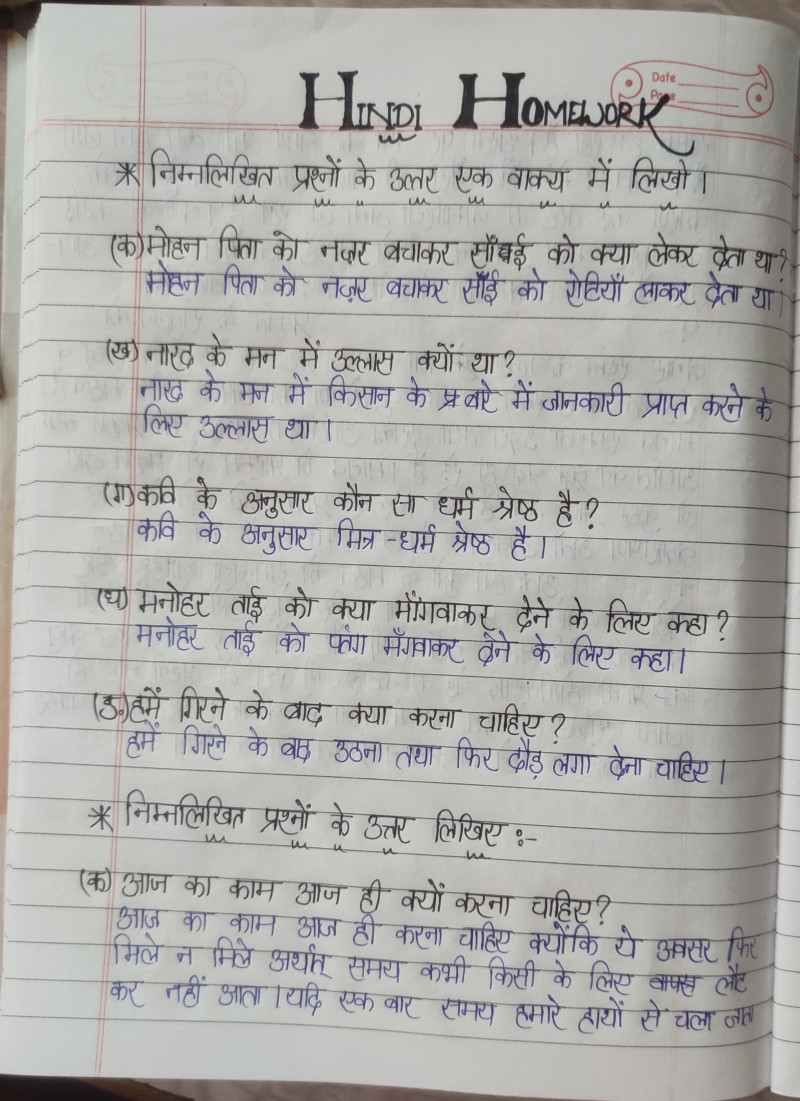 Date
Page
HINDI HOMEWORK
* निम्नलिखित प्रश्नों के उत्तर एक वाक्य में लिखो।
(क) मोहन पिता की नज़र बचाकर साँई को क्या लेकर देता था?
मोहन पिता की नज़र बचाकर साँई को रोटियाँ लाकर देता था।
(ख) नारद के मन में उल्लास क्यों था?
नारद के मन में किसान के बारे में जानकारी प्राप्त करने के
लिए उल्लास था।
(ग) कवि के अनुसार कौन सा धर्म श्रेष्ठ है?
कवि के अनुसार मित्र-धर्म श्रेष्ठ है।
(घ) मनोहर ताई को क्या माँगवाकर देने के लिए कहा?
मनोहर ताई को पतंग मँगवाकर देने के लिए कहा।
(ङ) हमें गिरने के बाद क्या करना चाहिए?
हमें गिरने के बाद उठना तथा फिर दौड़ लगा देना चाहिए।
* निम्नलिखित प्रश्नों के उत्तर लिखिए :-
(क) आज का काम आज ही क्यों करना चाहिए?
आज का काम आज ही करना चाहिए क्योंकि ये अवसर फिर
मिले न मिले अर्थात् समय कभी किसी के लिए लौट
कर नहीं आता। यदि एक बार समय हमारे हाथों से चला जाता